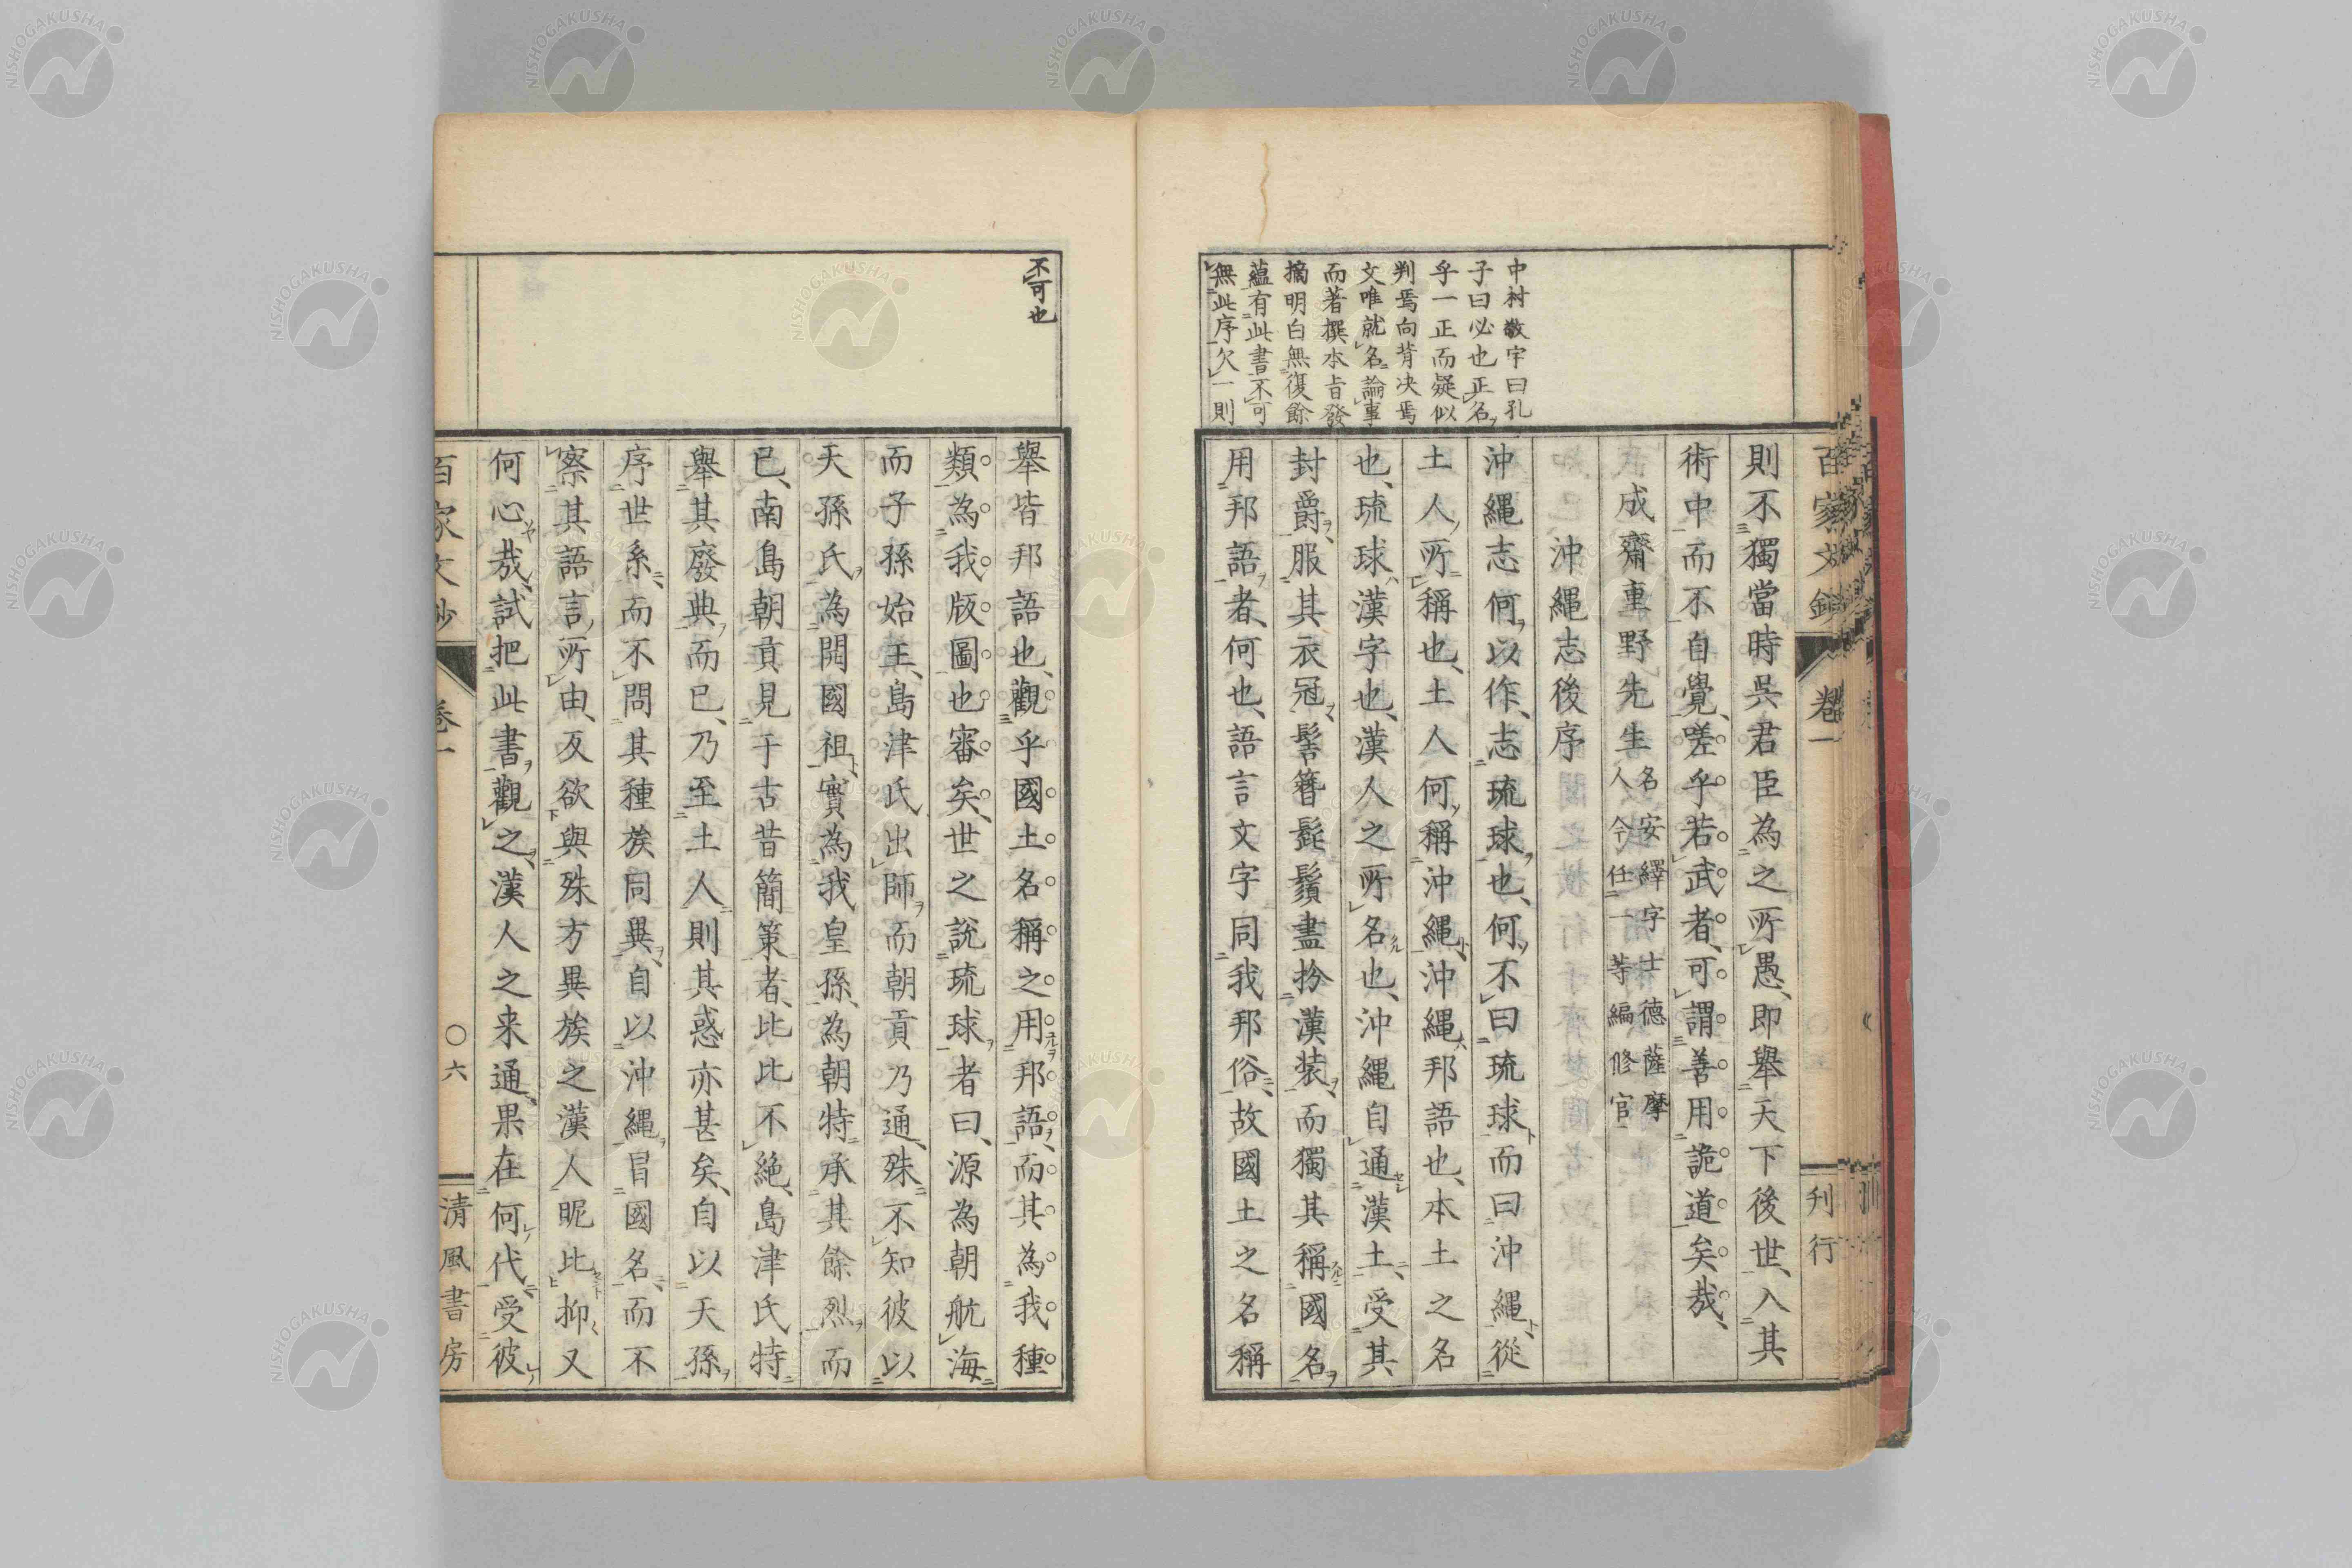 百家文鈔 卷一 刊行
則不獨當時吳君臣為之所愚、即舉天下後世、入其
術中而不自覺、嗟乎若武者、可謂善用詭道矣哉、
成齋重野先生 名安繹字士德薩摩
人今任一等編修官
沖繩志後序
沖繩志何以作、志琉球也、何不曰琉球而曰沖繩、從
土人所稱也、土人何稱沖繩、沖繩邦語也、本土之名
也、琉球漢字也、漢人之所名也、沖繩自通漢土、受其
封爵、服其衣冠、髻簪髭鬚盡扮漢装、而獨其稱國名、
用邦語者、何也、語言文字同我邦俗、故國土之名稱
中村敬宇曰孔
子曰必也正名
乎一正而疑似
判焉向背决焉
文唯就名論事
而著撰本旨發
摘明白無復餘
蘊有此書不可
無此序欠一則
不可也
舉皆邦語也、觀乎國土名稱之用邦語、而其為我種
類為我版圖也審矣、世之說琉球者曰、源為朝航海
而子孫始王、島津氏出師、而朝貢乃通、殊不知彼以
天孫氏為開國祖、實為我皇孫、為朝特承其餘烈而
已、南島朝貢見于古昔簡策者、比比不絶、島津氏特
舉其廢典而已、乃至土人則其惑亦甚矣、自以天孫
序世系、而不問其種族同異、自以沖繩冒國名、而不
察其語言所由、反欲與殊方異族之漢人昵比、抑又
何心哉、試把此書觀之、漢人之来通、果在何代、受彼
百家文鈔 卷一 ○六 清風書房